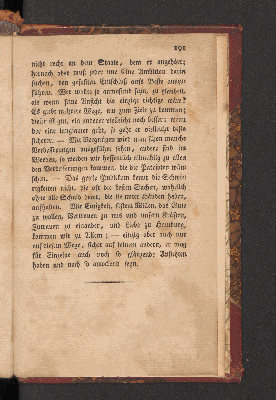 191
nicht recht an dem Staate, dem er angehört;
hernach aber muß jeder uns seine Ambition darin
suchen, den gefaßten Entschluß aufs Beste auszu-
führen. Wer wollte so anmaßend seyn, zu glauben,
als wenn seine Ansicht die einzige richtige wäre?
Es giebt mehrere Wege, um zum Ziele zu kommen;
dieser ist gut, ein anderer vielleicht noch besser; wenn
der eine langsamer geht, so geht er vielleicht desto
sicherer. — Mit Vergnügen wird man schon manche
Verbesserungen ausgeführt sehen, andere sind im
Werden, so werden wir hoffentlich allmählig zu allen
den Verbesserungen kommen, die die Patrioten wün-
schen. — Das große Publikum kennt die Schwie-
rigkeiten nicht, die oft die besten Sachen, wahrlich
ohne alle Schuld derer, die sie unter Händen haben,
aufhalten. Mit Einigkeit, festem Willen, das Gute
zu wollen, Vertrauen zu uns und unsern Kräften,
Zutrauen zu einander, und Liebe zu Hamburg,
kommen wir zu Allem; — einzig aber auch nur
auf diesem Wege, sicher auf keinem andern, er mag
für Einzelne auch noch so glänzende Aussichten
haben und noch so anlockend seyn.